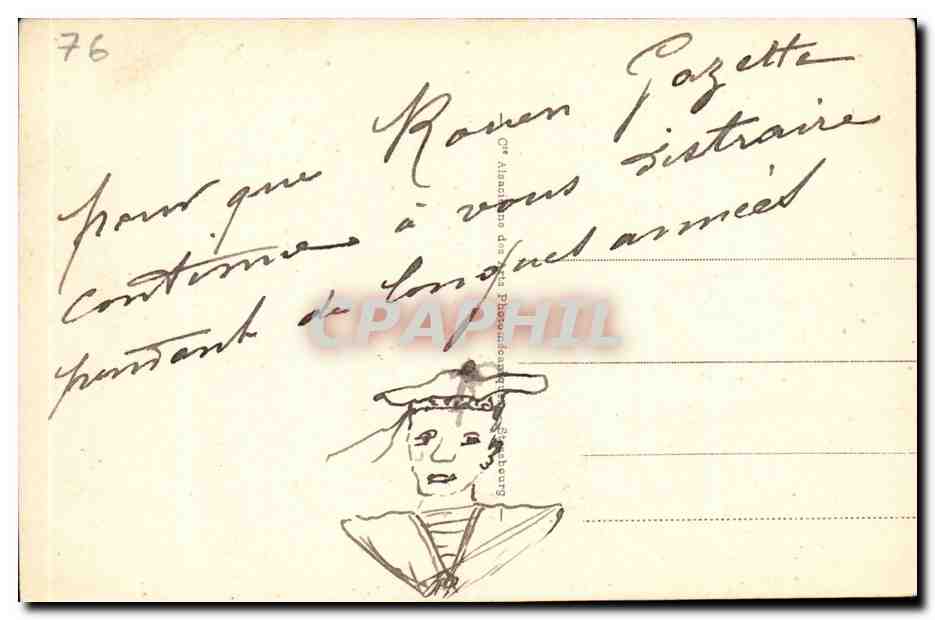 76
pour que Rouen Gazette
continue à vous distraire
pendant de longues années
Cie Alsacienne des Arts Photomécaniques Strasbourg
CPAPHIL